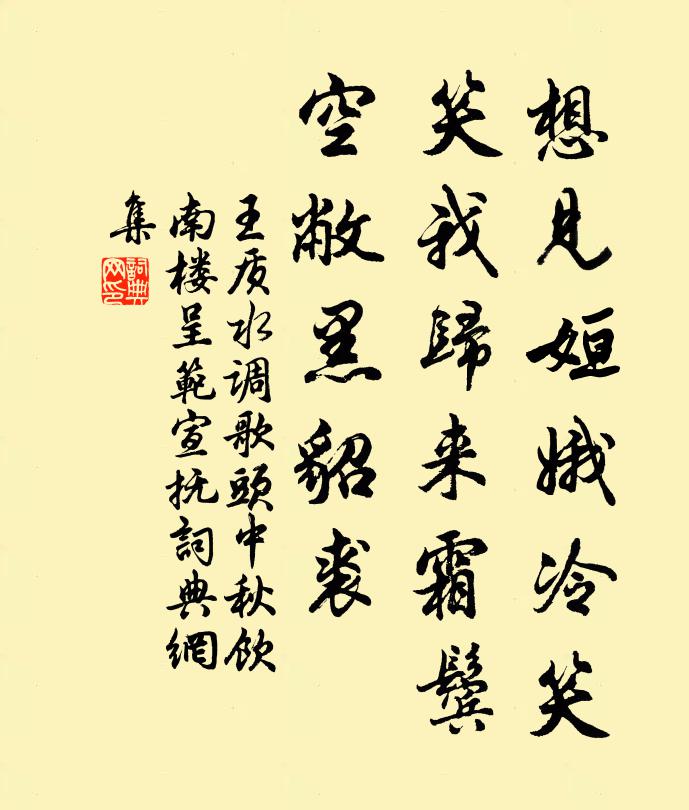 想見姮娥冷笑
笑我歸来霜鬓
空敝黑貂裘
王质水调歌頭中秋飲
南楼呈範宣抚詞典網
集
詞典
网印